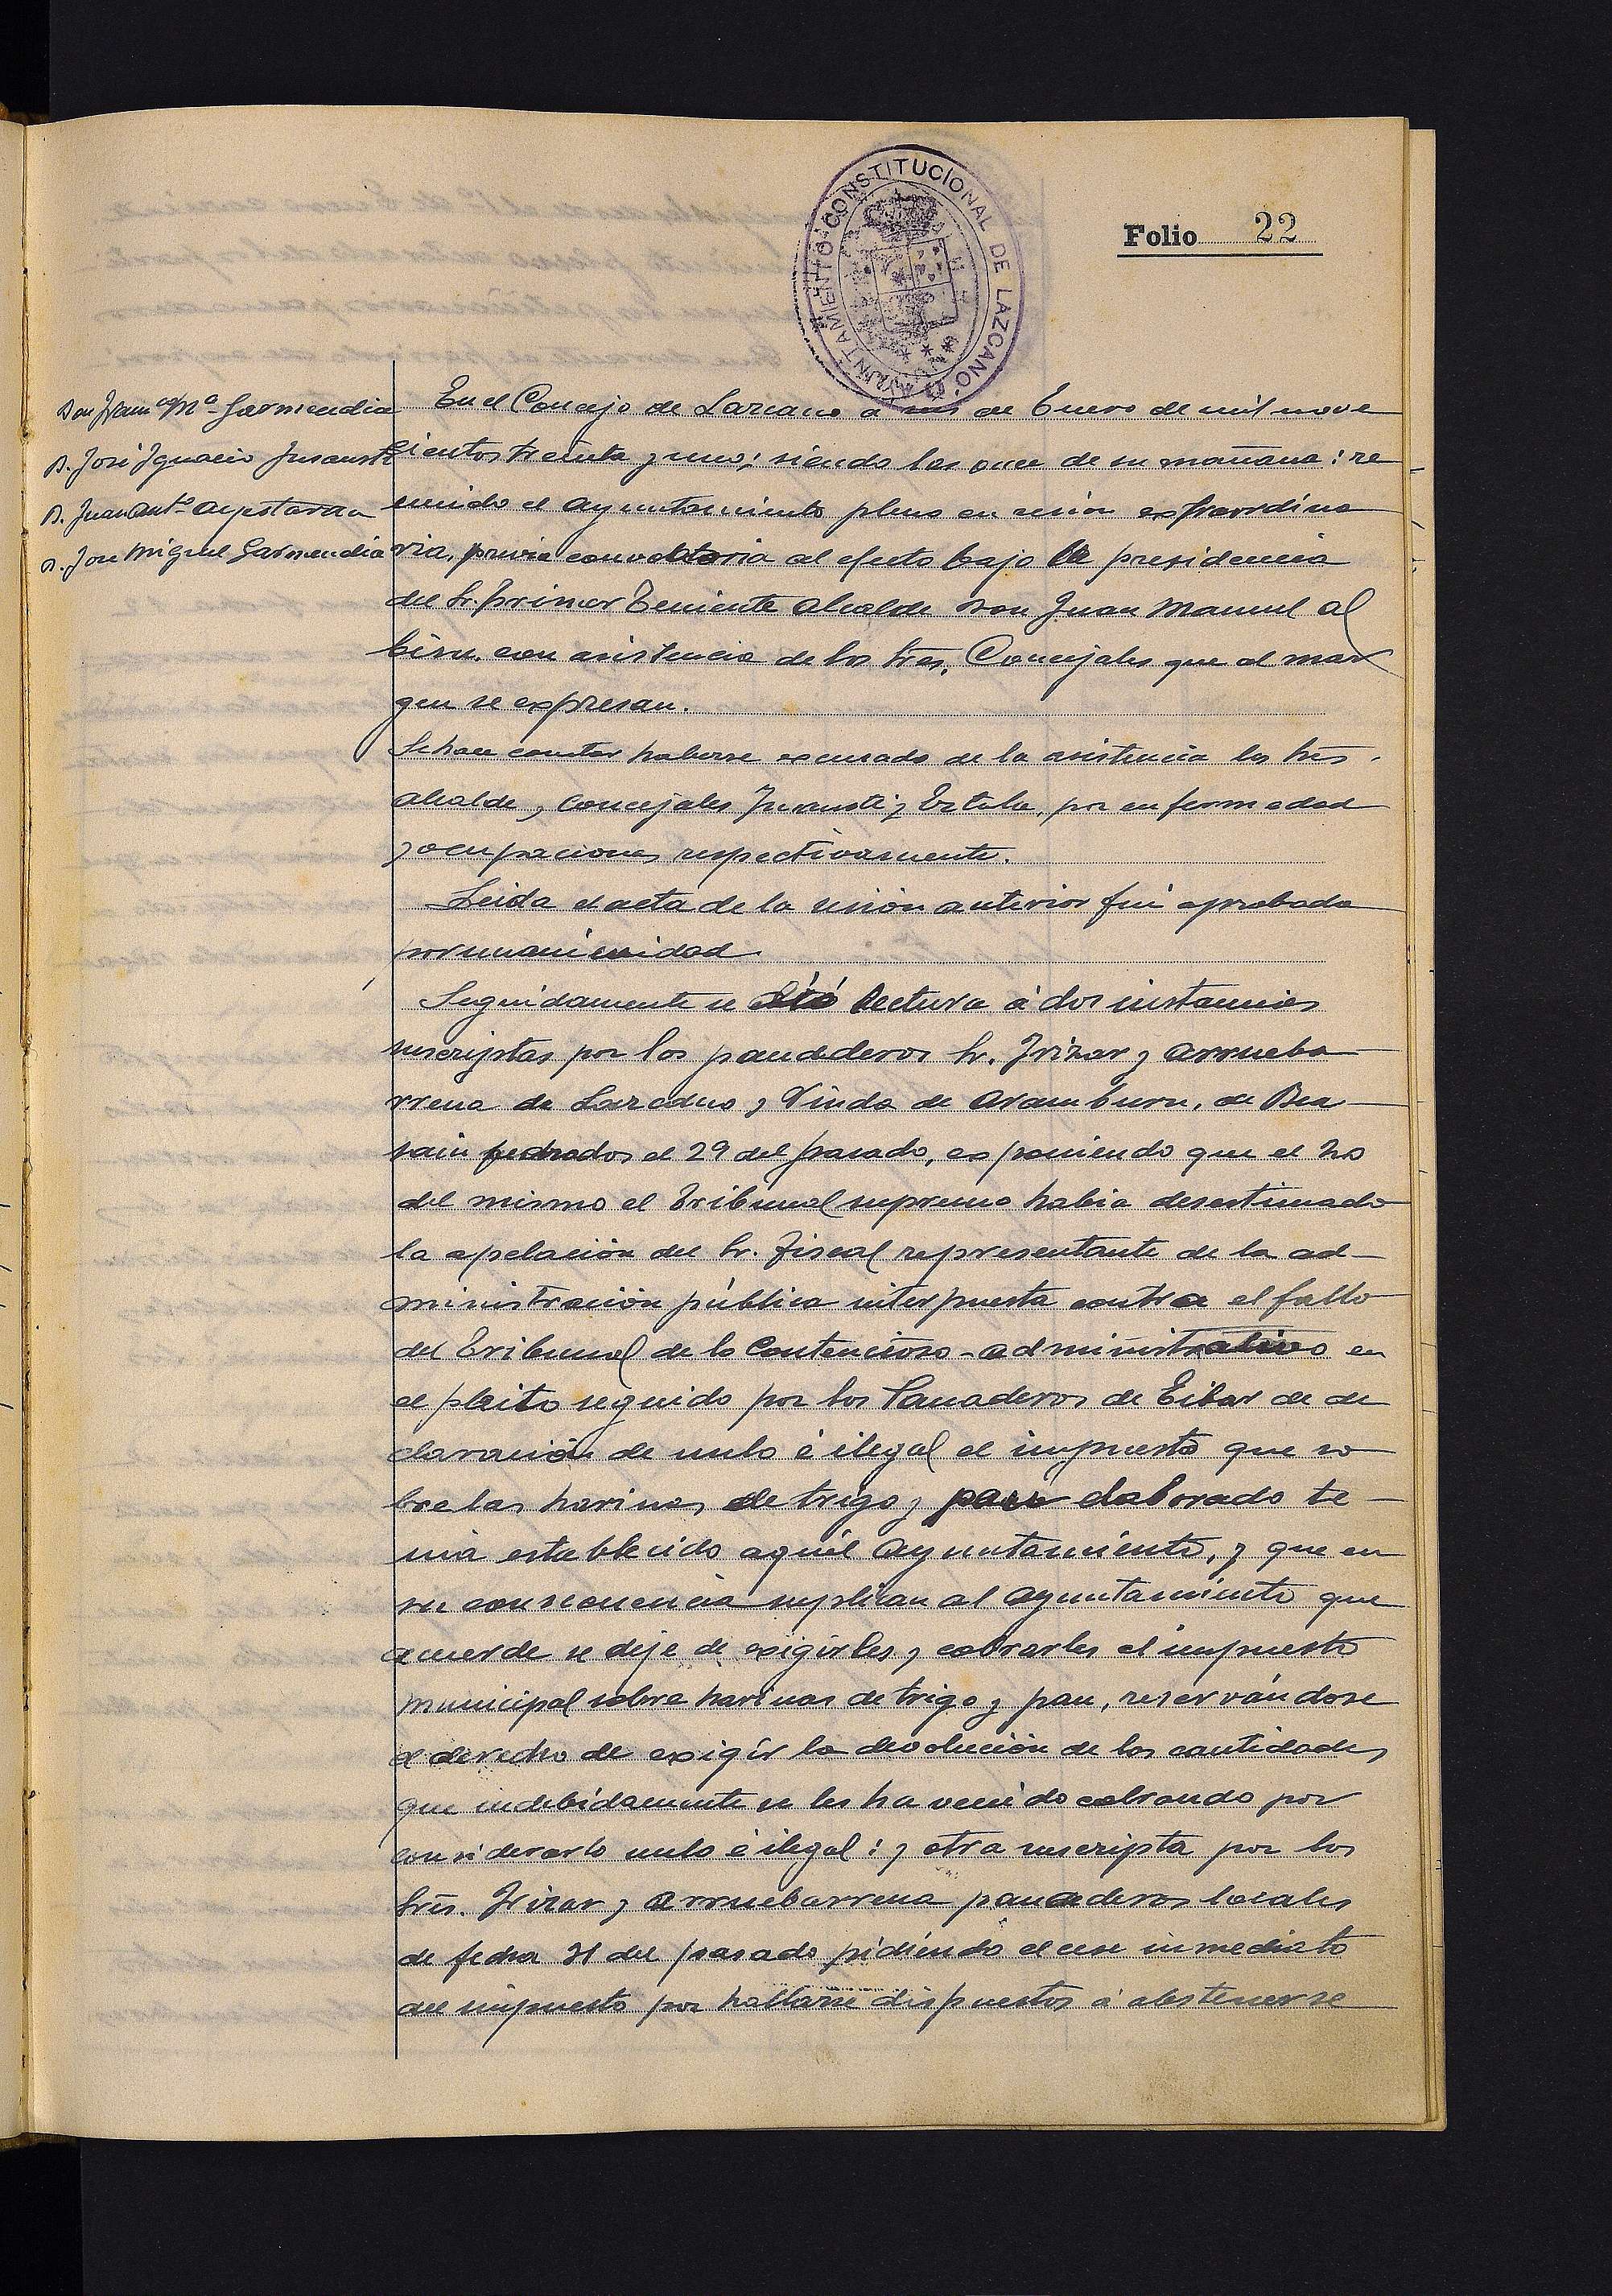 AYUNTAMIENTO CONSTITUCIONAL DE LAZCANO
Folio 22
Don Juan Mª Garmendia
D. José Ignacio Insausti
D. Juan Antº Ayestaran
D. José Miguel Garmendia
En el Concejo de Lazcano a seis de Enero de mil nove
cientos treinta y uno; siendo las once de su mañana: re
unido el Ayuntamiento pleno en sesion extraordina
ria, previa convocatoria al efecto bajo la presidencia
del Sr. primer Teniente Alcalde Don Juan Manuel Al
bisu. con asistencia de los Sres. Concejales que al mar
gen se expresan.
Se hace constar haberse excusado de la asistencia los Sres.
Alcalde, Concejales Insausti y por enfermedad
y ocupaciones respectivamente.
Leida el acta de la sesion anterior fué aprobada
por unanimidad.
Seguidamente se dió lectura á dos instancias
suscriptas por los panaderos Sr. Irizar y Arrueba
rrena de Lazcano y Viuda de Aramburu, de Bea
sain fechados el 29 del pasado, exponiendo que el
del mismo el Tribunal supremo habia desestimado
la apelación del Sr. Fiscal representante de la ad-
ministración pública interpuesta contra el fallo
del Tribunal de lo Contencioso-administrativo en
el pleito seguido por los Panaderos de Eibar de de
claración de nulo é ilegal el impuesto que so
bre las harinas de trigo y pan elaborado te-
nia establecido aquél Ayuntamiento, y que en
su consecuencia suplican al Ayuntamiento que
acuerde se deje de exigirles y cobrarles el impuesto
municipal sobre harinas de trigo y pan, reservándose
el derecho de exigir la devolución de las cantidades
que indebidamente se les ha venido cobrando por
considerarlo nulo é ilegal: y otra suscripta por los
Sres. Irizar y Arruebarrena panaderos locales
de fecha 31 del pasado pidiendo el cese inmediato
del impuesto por hallarse dispuestos á abstenerse